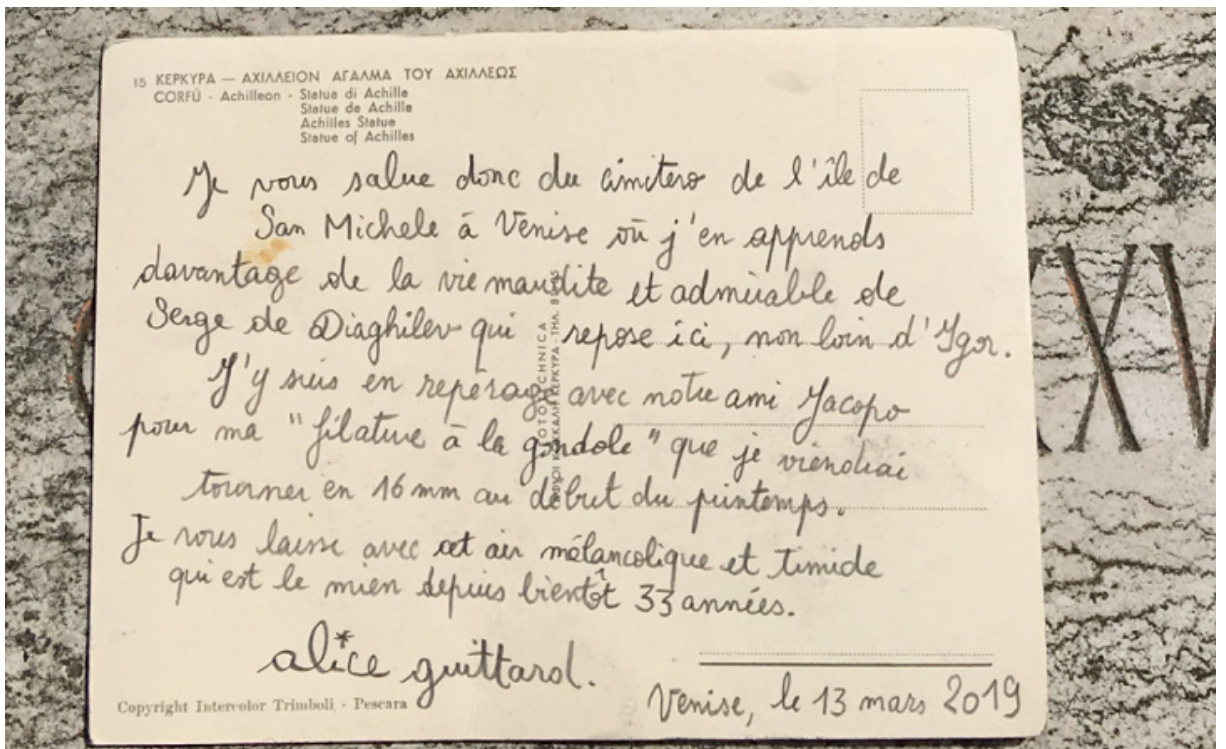 15 ΚΕΡΚΥΡΑ — ΑΧΙΛΛΕΙΟΝ ΑΓΑΛΜΑ ΤΟΥ ΑΧΙΛΛΕΩΣ
CORFÙ - Achilleon - Statua di Achille
Statue de Achille
Achilles Statue
Statue of Achilles
Je vous salue donc du cimitero de l'île de
San Michele à Venise où j'en apprends
davantage de la vie maudite et admirable de
Serge de Diaghilev qui repose ici, non loin d'Igor.
J'y suis en repérage avec notre ami Jacopo
pour ma "filature à la gondole" que je viendrai
tourner en 16 mm au début du printemps.
Je vous laisse avec cet air mélancolique et timide
qui est le mien depuis bientôt 33 années.
alice guittard.
Venise, le 13 mars 2019
Copyright Intervolor Trimboli - Pescara
ΚΕΡΚΥΡΑ - ΤΗΛ.
XV